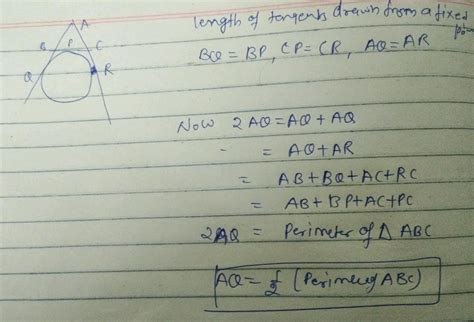 A
B P C
Q R
length of tangents drawn from a fixed
point
BQ = BP, CP = CR, AQ = AR
Now 2AQ = AQ + AQ
= AQ + AR
= AB + BQ + AC + RC
= AB + BP + AC + PC
2AQ = Perimeter of Δ ABC
AQ = 1/2 (Perimeter of ABC)